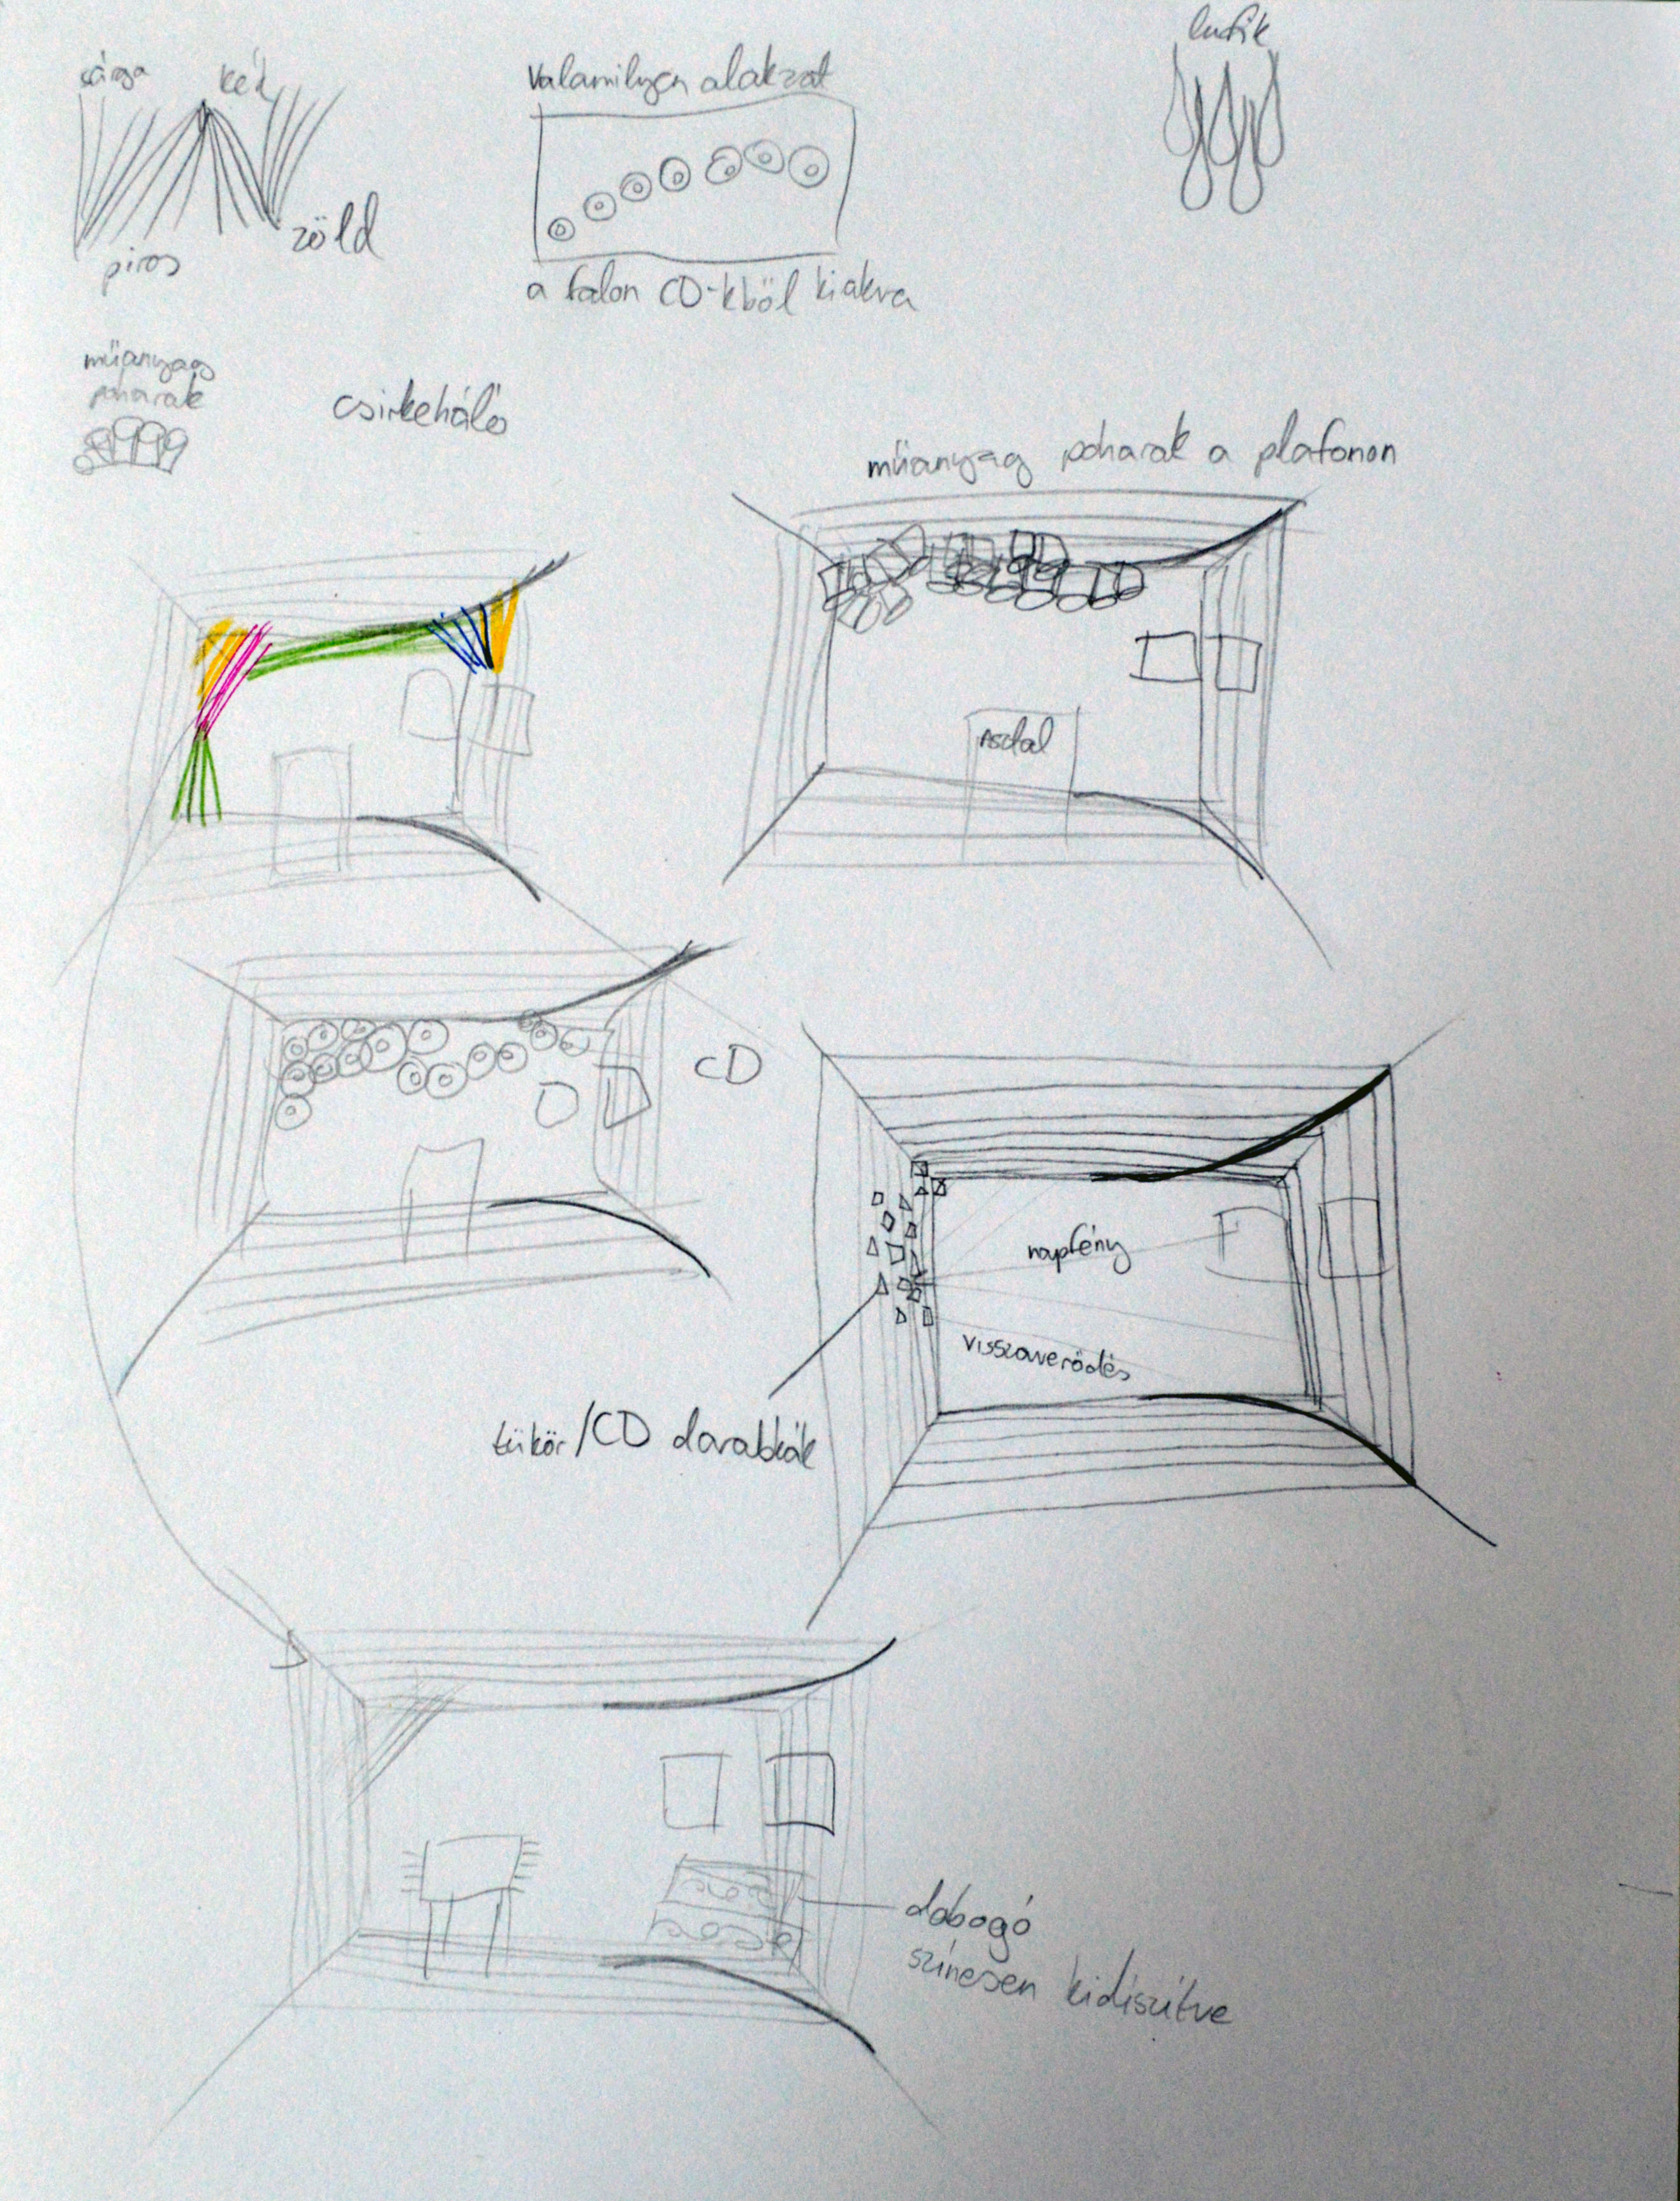 sárga kék
piros
zöld
Valamilyen alakzat
a falon CD-kből kiakva
lufik
műanyag
poharak
csirkeháló
műanyag poharak a plafonon
Asztal
CD
napfény
visszaverődés
tükör/CD darabkák
dobogó
színesen kidíszítve